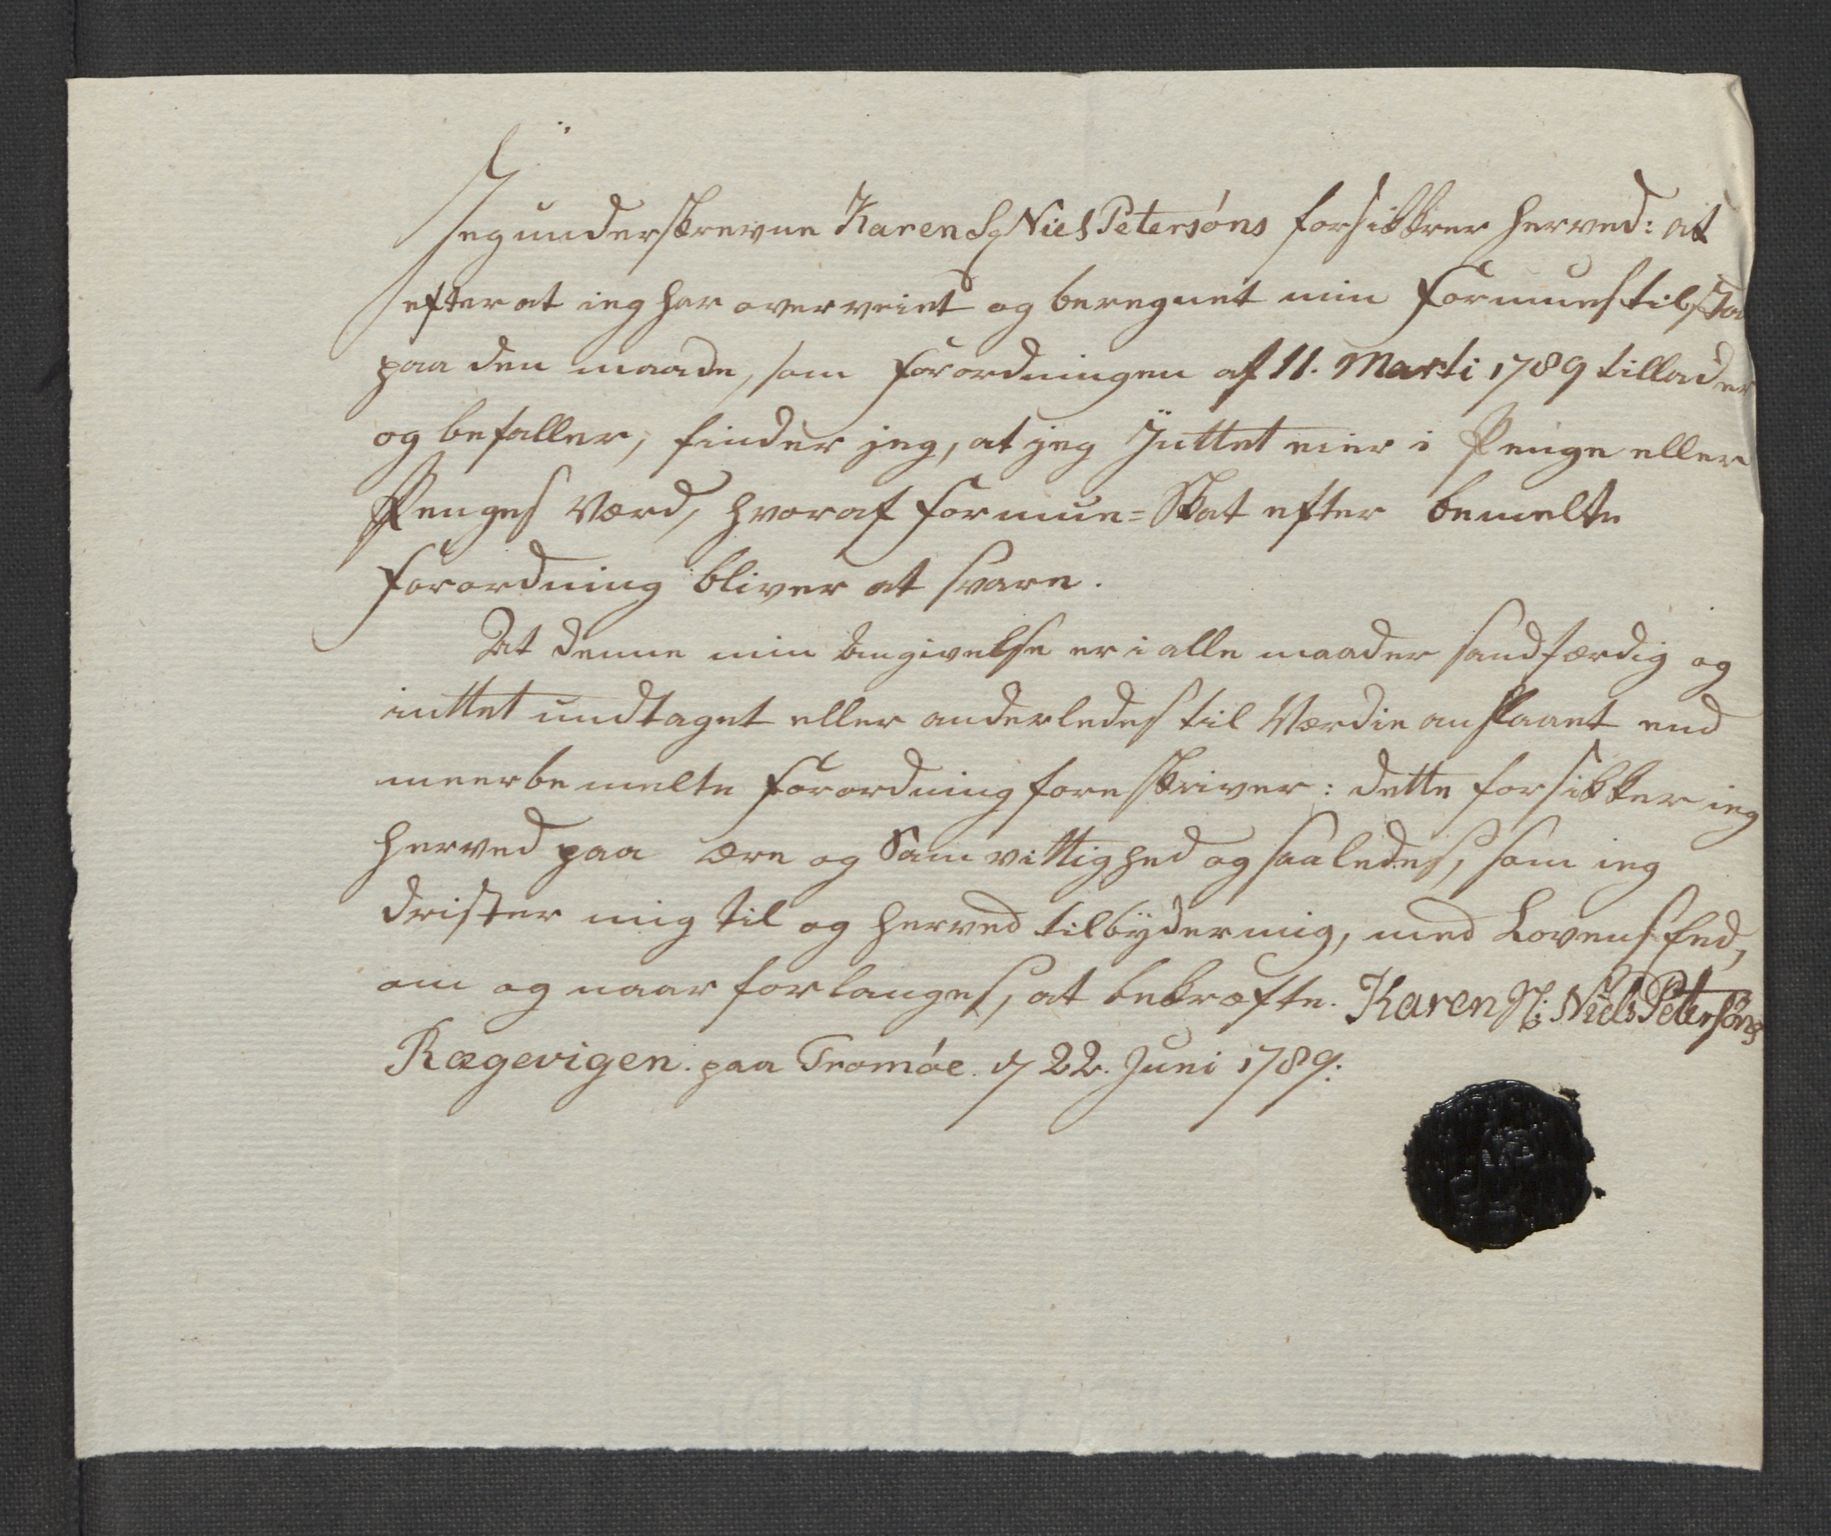 Jeg underskrevne Karen Sg Niels Petersøns forsikkrer herved: at
efter at ieg har overveiet og beregnet min Formues tilsta
paa den maade, som Forordningen af 11. Marti 1789 tillader
og befaller, finder jeg, at jeg Inttet eier i Penge eller
Penges Værd, hvoraf Formue=Skat efter bemelte
Forordning bliver at svare.
At denne min Angivelse er i alle maader sandfærdig og
inttet undtaget eller anderledes til Værdie anslaaet end
meerbemelte Forordning foreskriver: dette forsikker ieg
herved paa Ære og Samvittighed og saaledes, som ieg
drister mig til og herved tilbÿder mig, med Lovens Eed,
om og naar forlanges, at bekræfte. Karen Niels Petersøns
Rægevigen. paa Tromøe. d 22. Juni 1789.